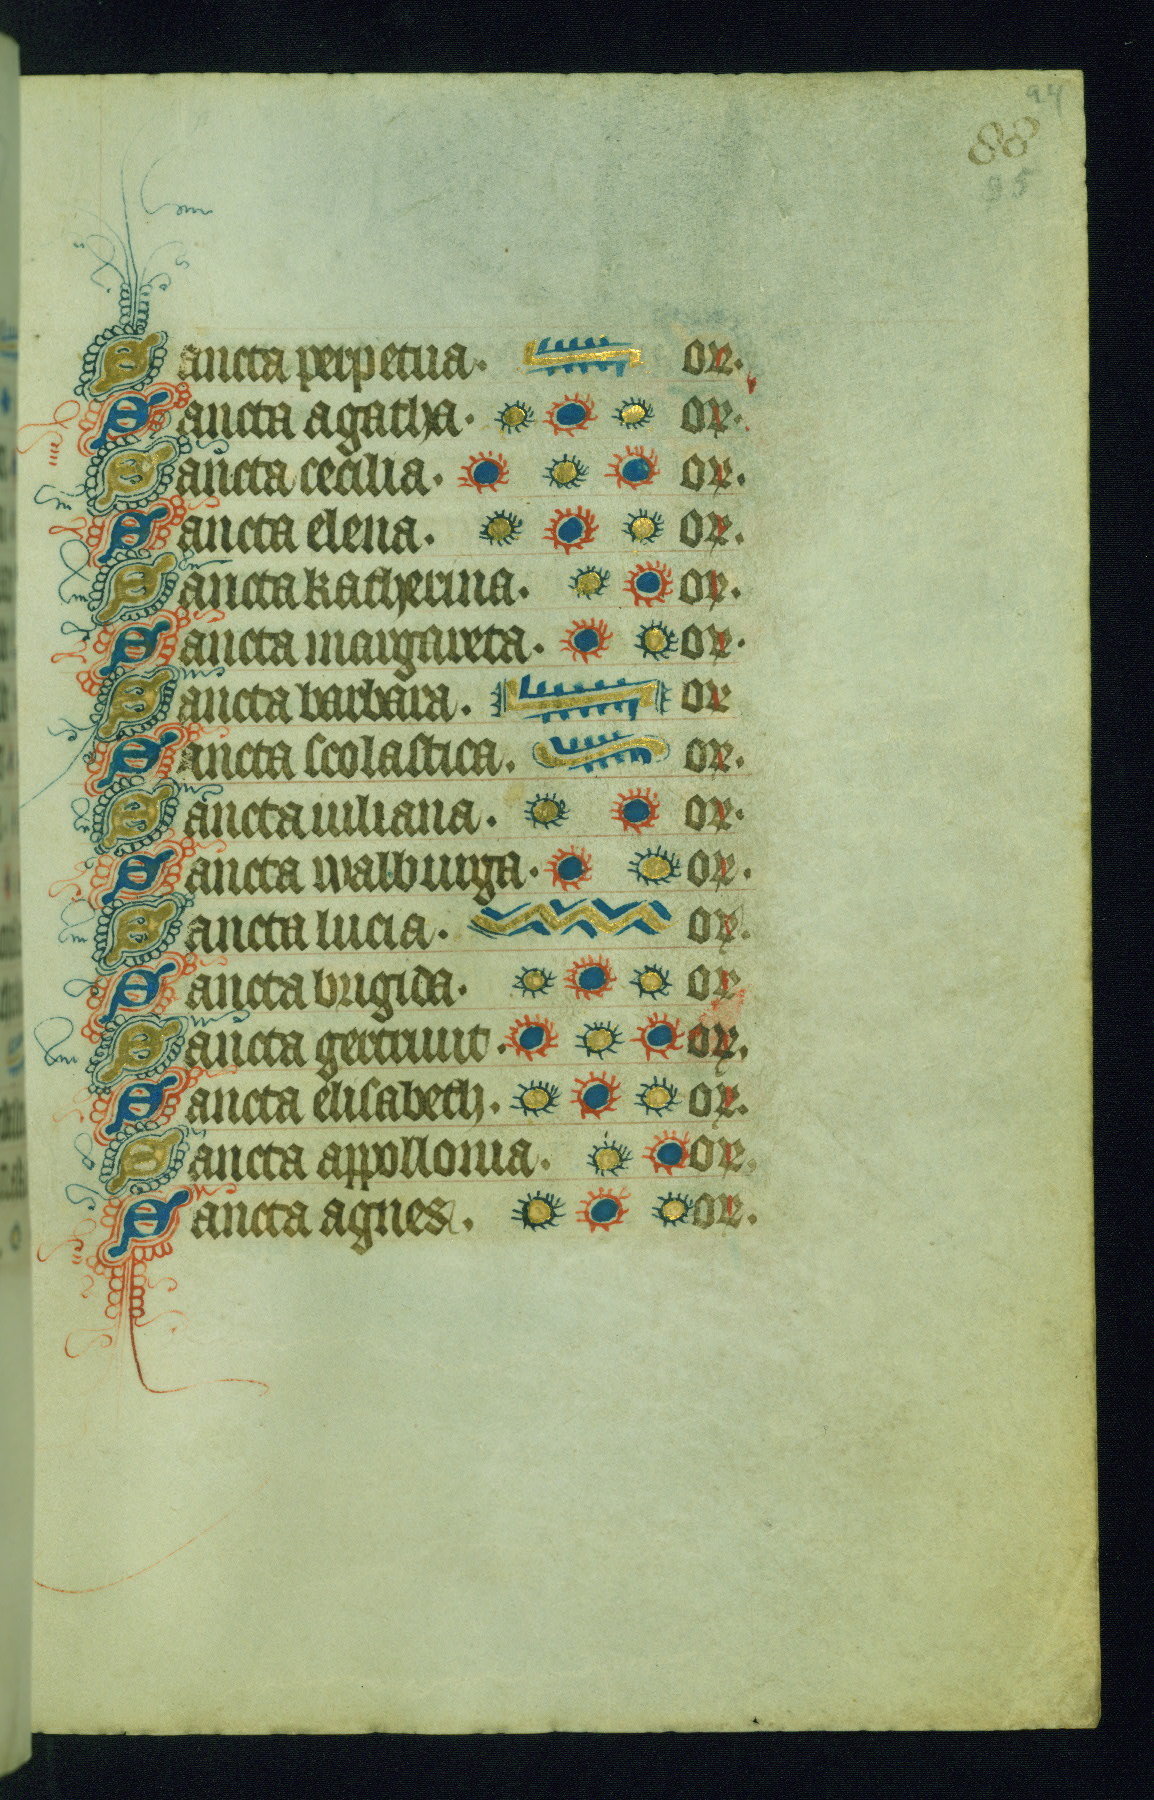 94
88
95
Sancta perpetua. or.
Sancta agatha. or.
Sancta cecilia. or.
Sancta elena. or.
Sancta katherina. or.
Sancta margareta. or.
Sancta barbara. or
Sancta scolastica. or.
Sancta iuliana. or.
Sancta walburga. or.
Sancta lucia. or.
Sancta brigida. or
Sancta gertruut. or.
Sancta elisabeth. or.
Sancta appollonia. or.
Sancta agnes. or.